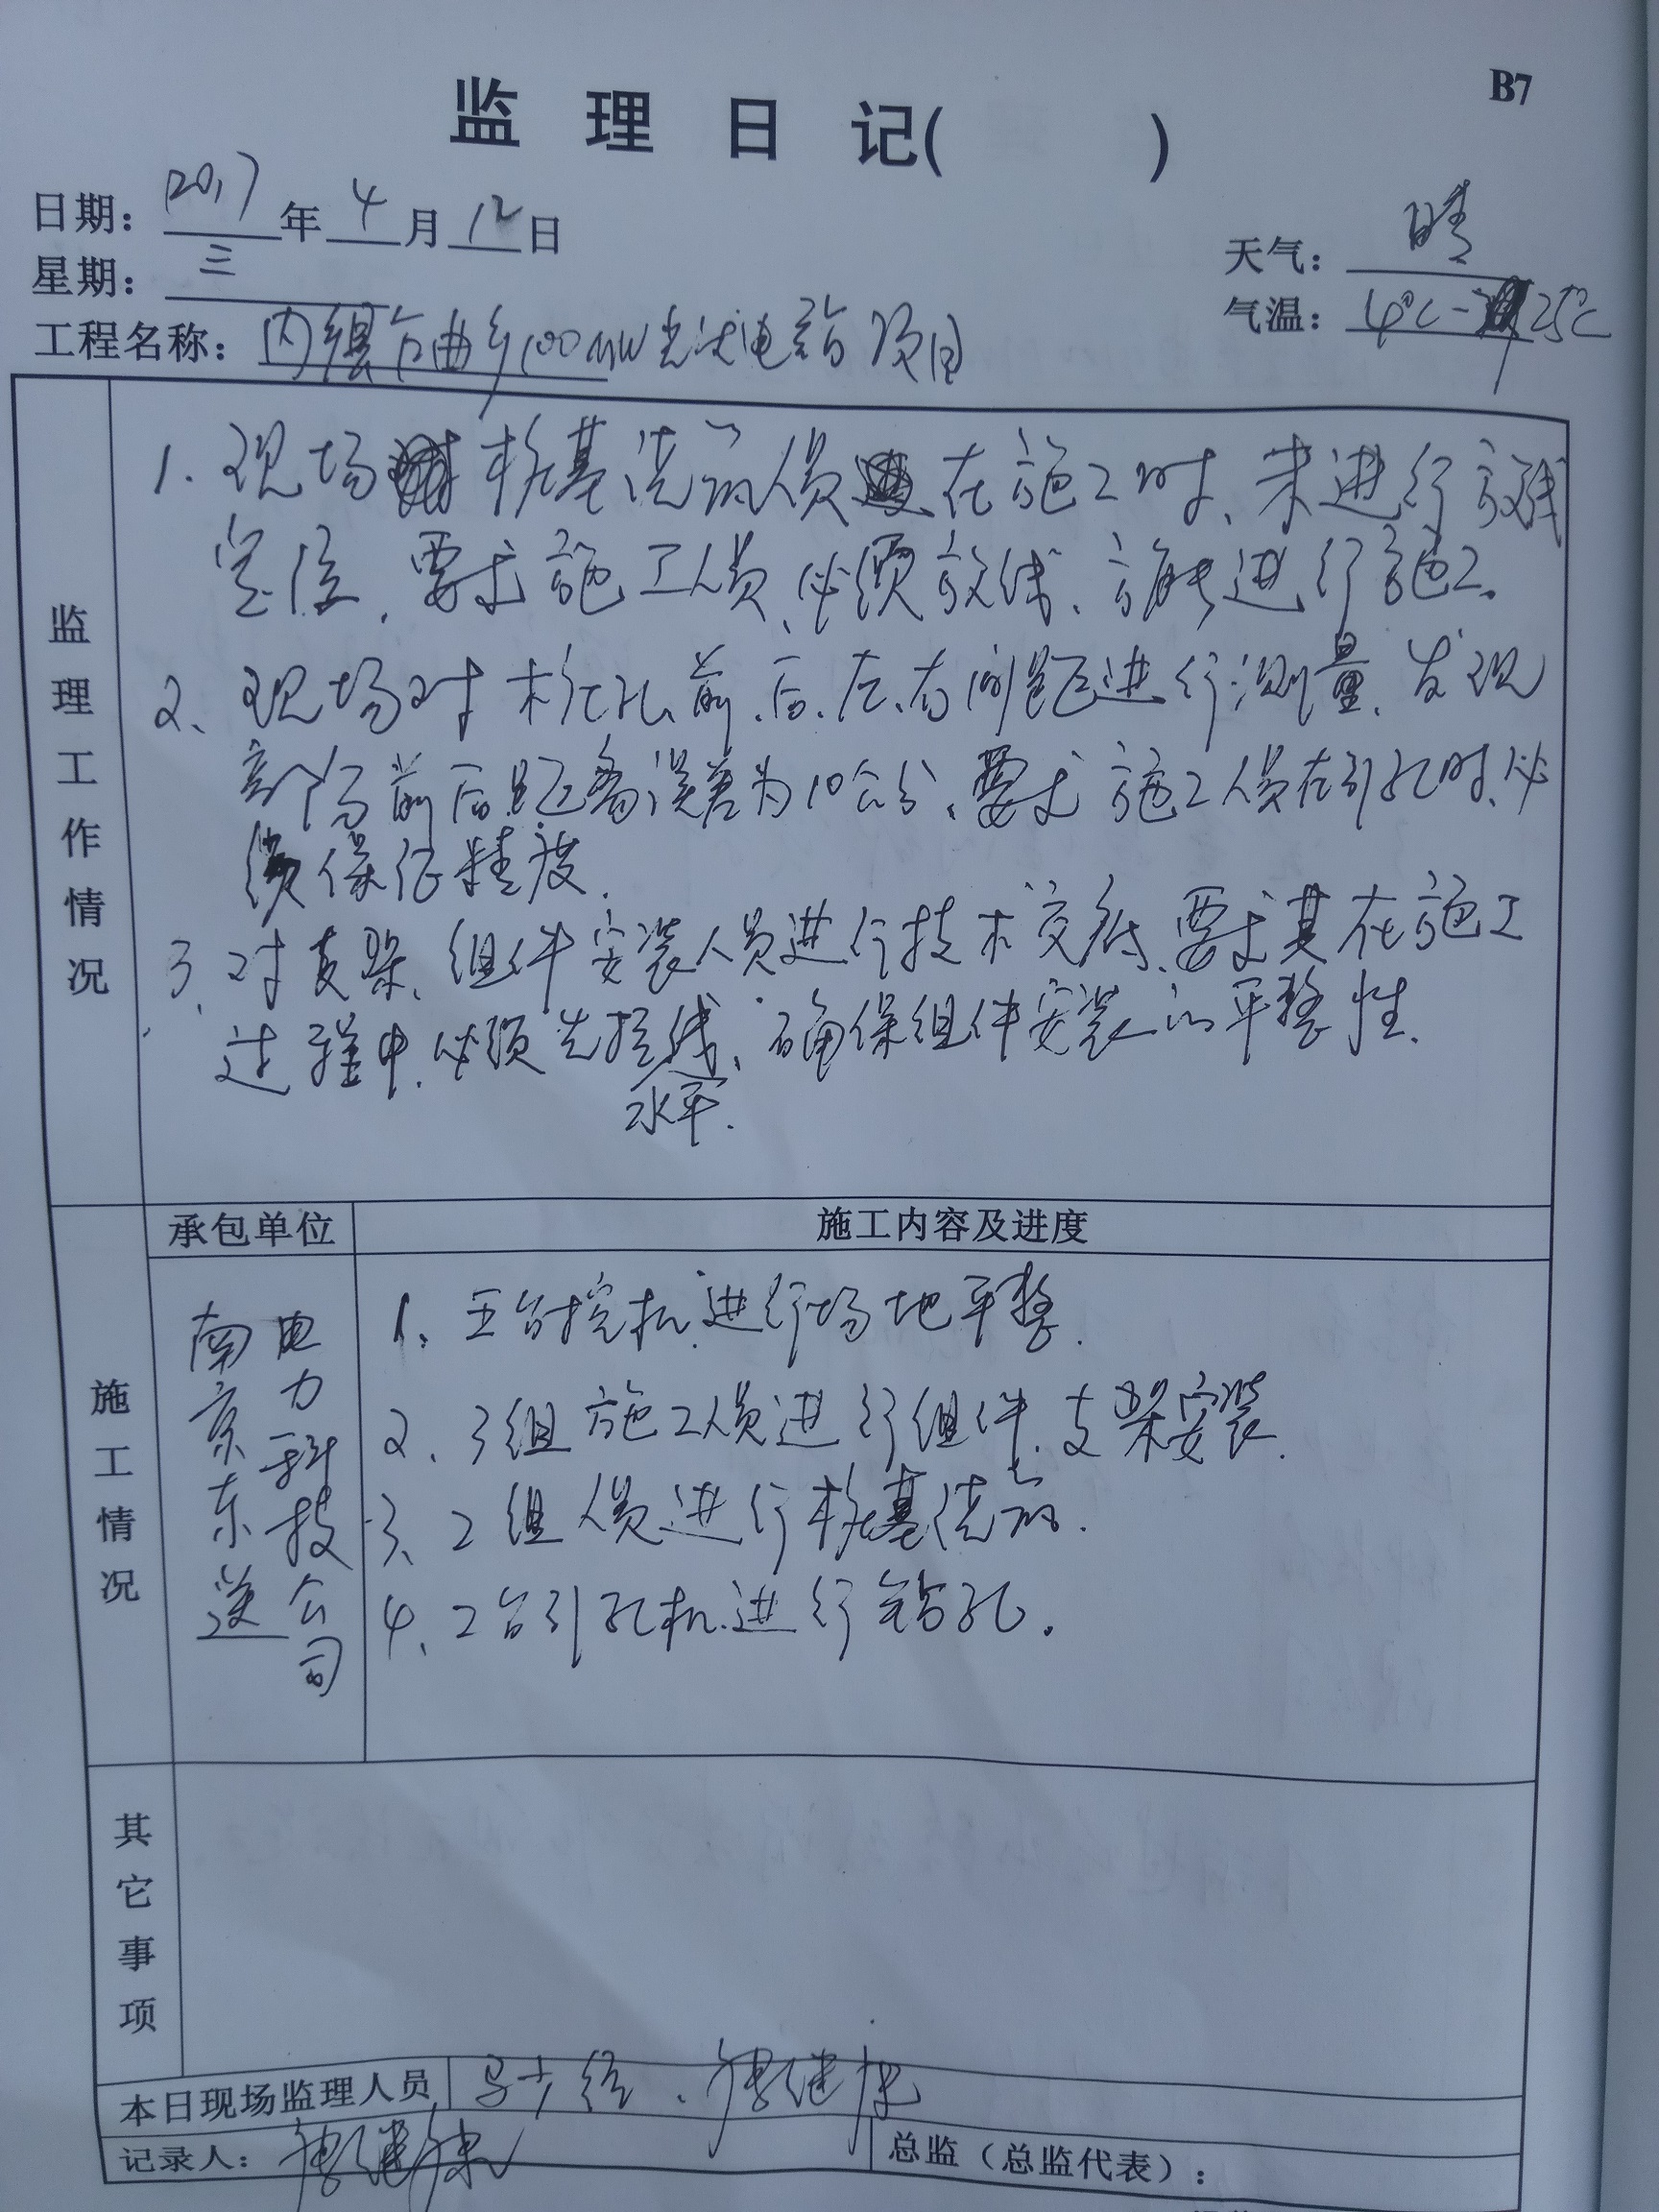 B7
监理日记( )
日期：2017年4月12日
星期：三
天气：晴
气温：4℃-25℃
工程名称：内丘100MW光伏电站项目
监理工作情况
1. 现场桩基浇筑人员在施工时、未进行放线
定位，要求施工人员必须放线、方能进行施工。
2、现场对桩孔前、后、左、右间距进行测量、发现
部份前后距离误差为10公分、要求施工人员在引孔时、必
须保证精度.
3、对支架、组件安装人员进行技术交底、要求其在施工
过程中、必须先拉线、确保组件安装的平整性.
水平.
施工情况
承包单位
施工内容及进度
南京东送
电力科技公司
1、五台挖机进行场地平整.
2、3组施工人员进行组件、支架安装.
3、2组人员进行桩基浇筑.
4、2台引孔机进行钻孔.
其它事项
本日现场监理人员
记录人：
总监（总监代表）：